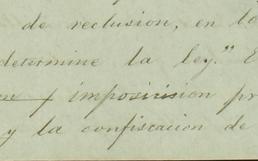 de reclusion, en lo
determine la ley." E
y imposicion pr
y la confiscacion de